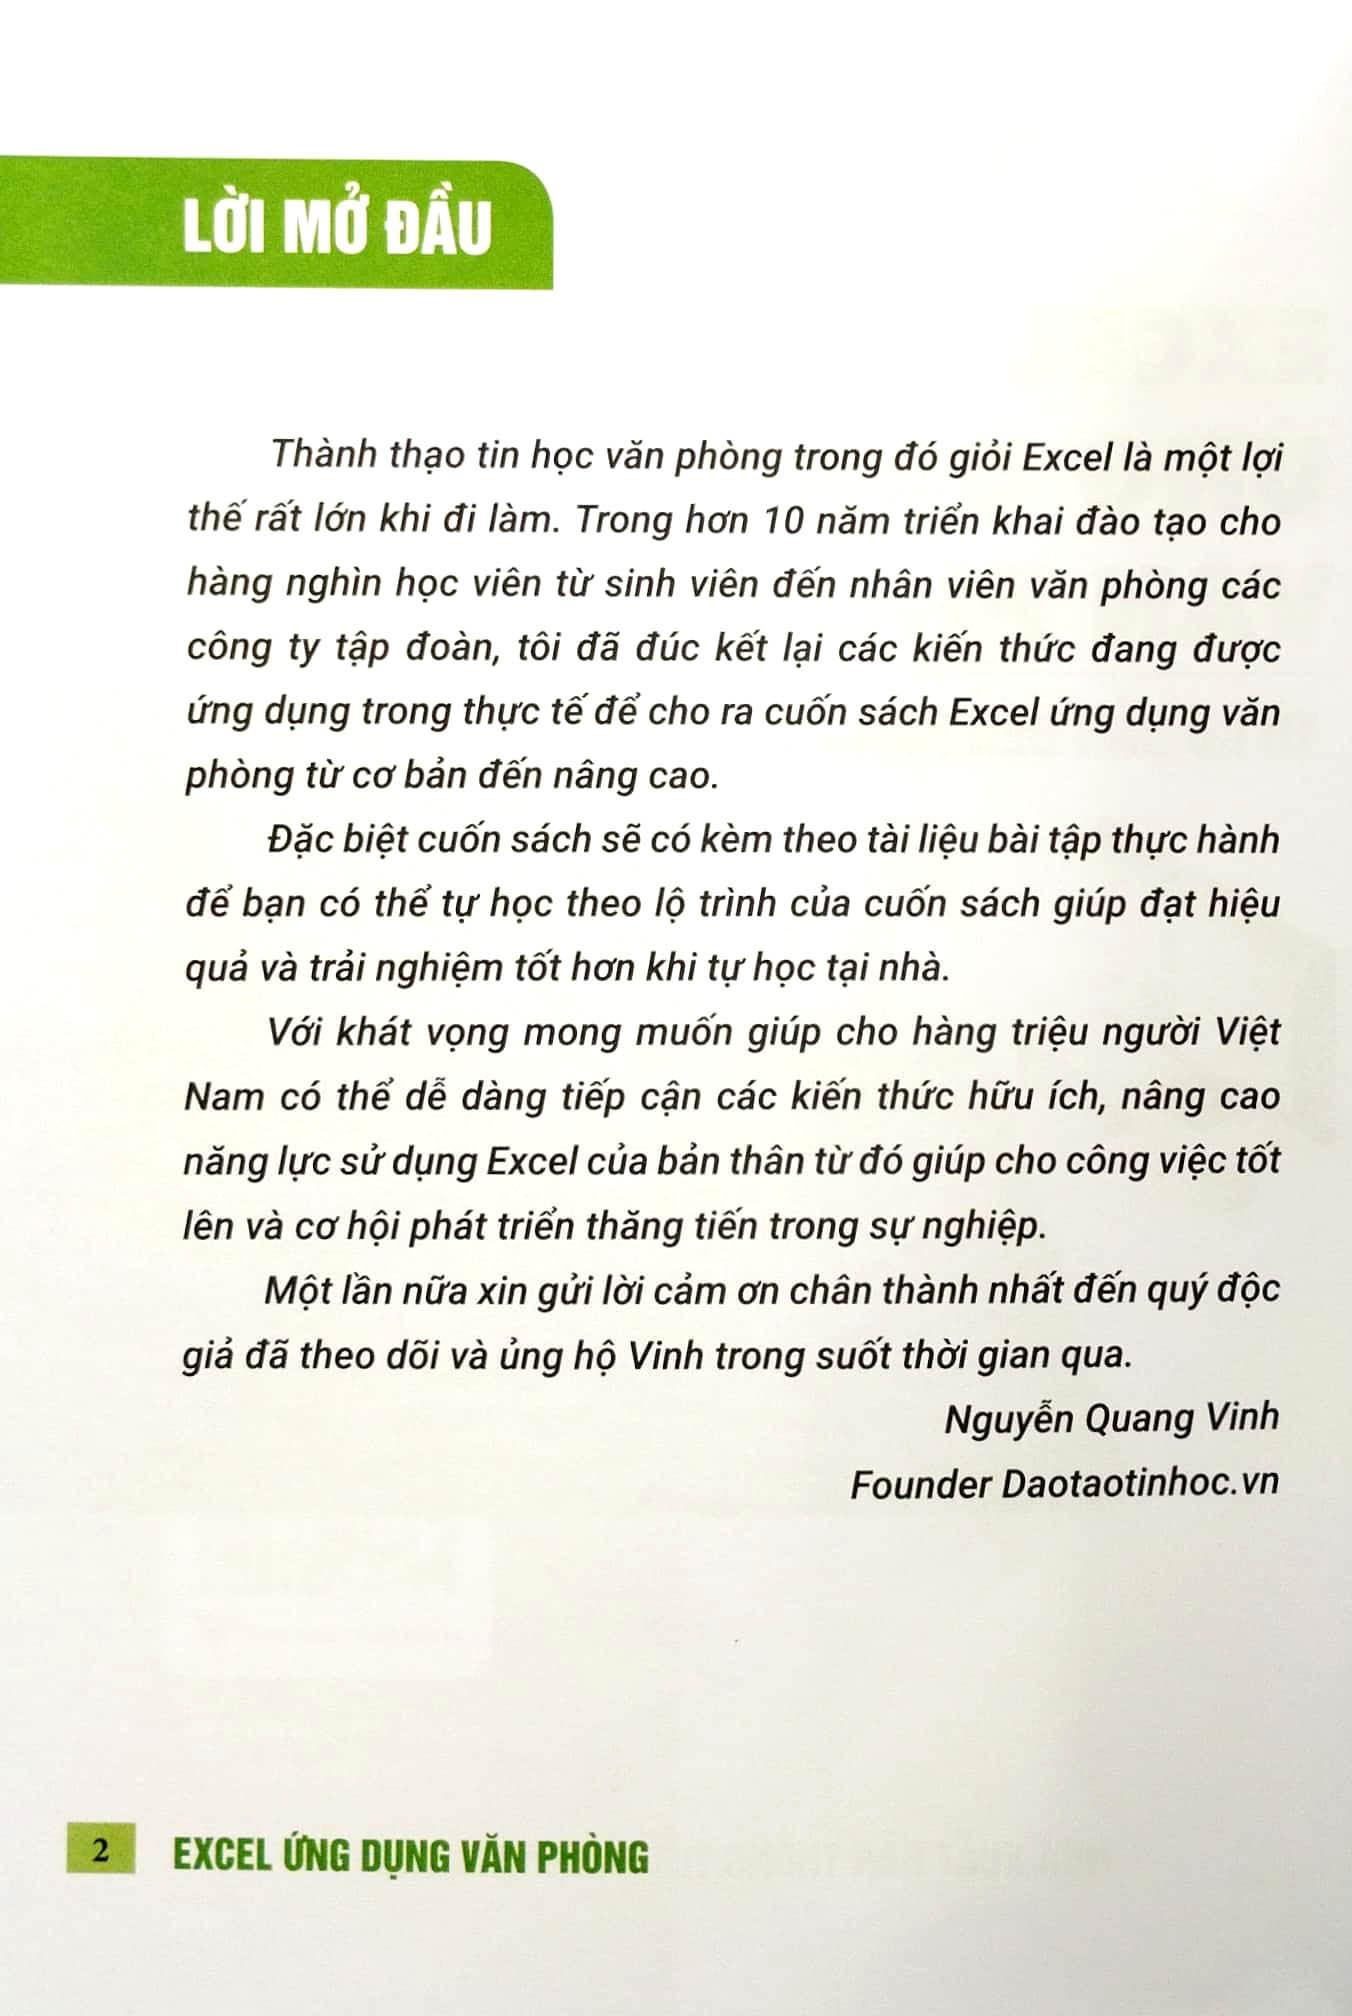 LỜI MỞ ĐẦU
Thành thạo tin học văn phòng trong đó giỏi Excel là một lợi
thế rất lớn khi đi làm. Trong hơn 10 năm triển khai đào tạo cho
hàng nghìn học viên từ sinh viên đến nhân viên văn phòng các
công ty tập đoàn, tôi đã đúc kết lại các kiến thức đang được
ứng dụng trong thực tế để cho ra cuốn sách Excel ứng dụng văn
phòng từ cơ bản đến nâng cao.
Đặc biệt cuốn sách sẽ có kèm theo tài liệu bài tập thực hành
để bạn có thể tự học theo lộ trình của cuốn sách giúp đạt hiệu
quả và trải nghiệm tốt hơn khi tự học tại nhà.
Với khát vọng mong muốn giúp cho hàng triệu người Việt
Nam có thể dễ dàng tiếp cận các kiến thức hữu ích, nâng cao
năng lực sử dụng Excel của bản thân từ đó giúp cho công việc tốt
lên và cơ hội phát triển thăng tiến trong sự nghiệp.
Một lần nữa xin gửi lời cảm ơn chân thành nhất đến quý độc
giả đã theo dõi và ủng hộ Vinh trong suốt thời gian qua.
Nguyễn Quang Vinh
Founder Daotaotinhoc.vn
2 EXCEL ỨNG DỤNG VĂN PHÒNG